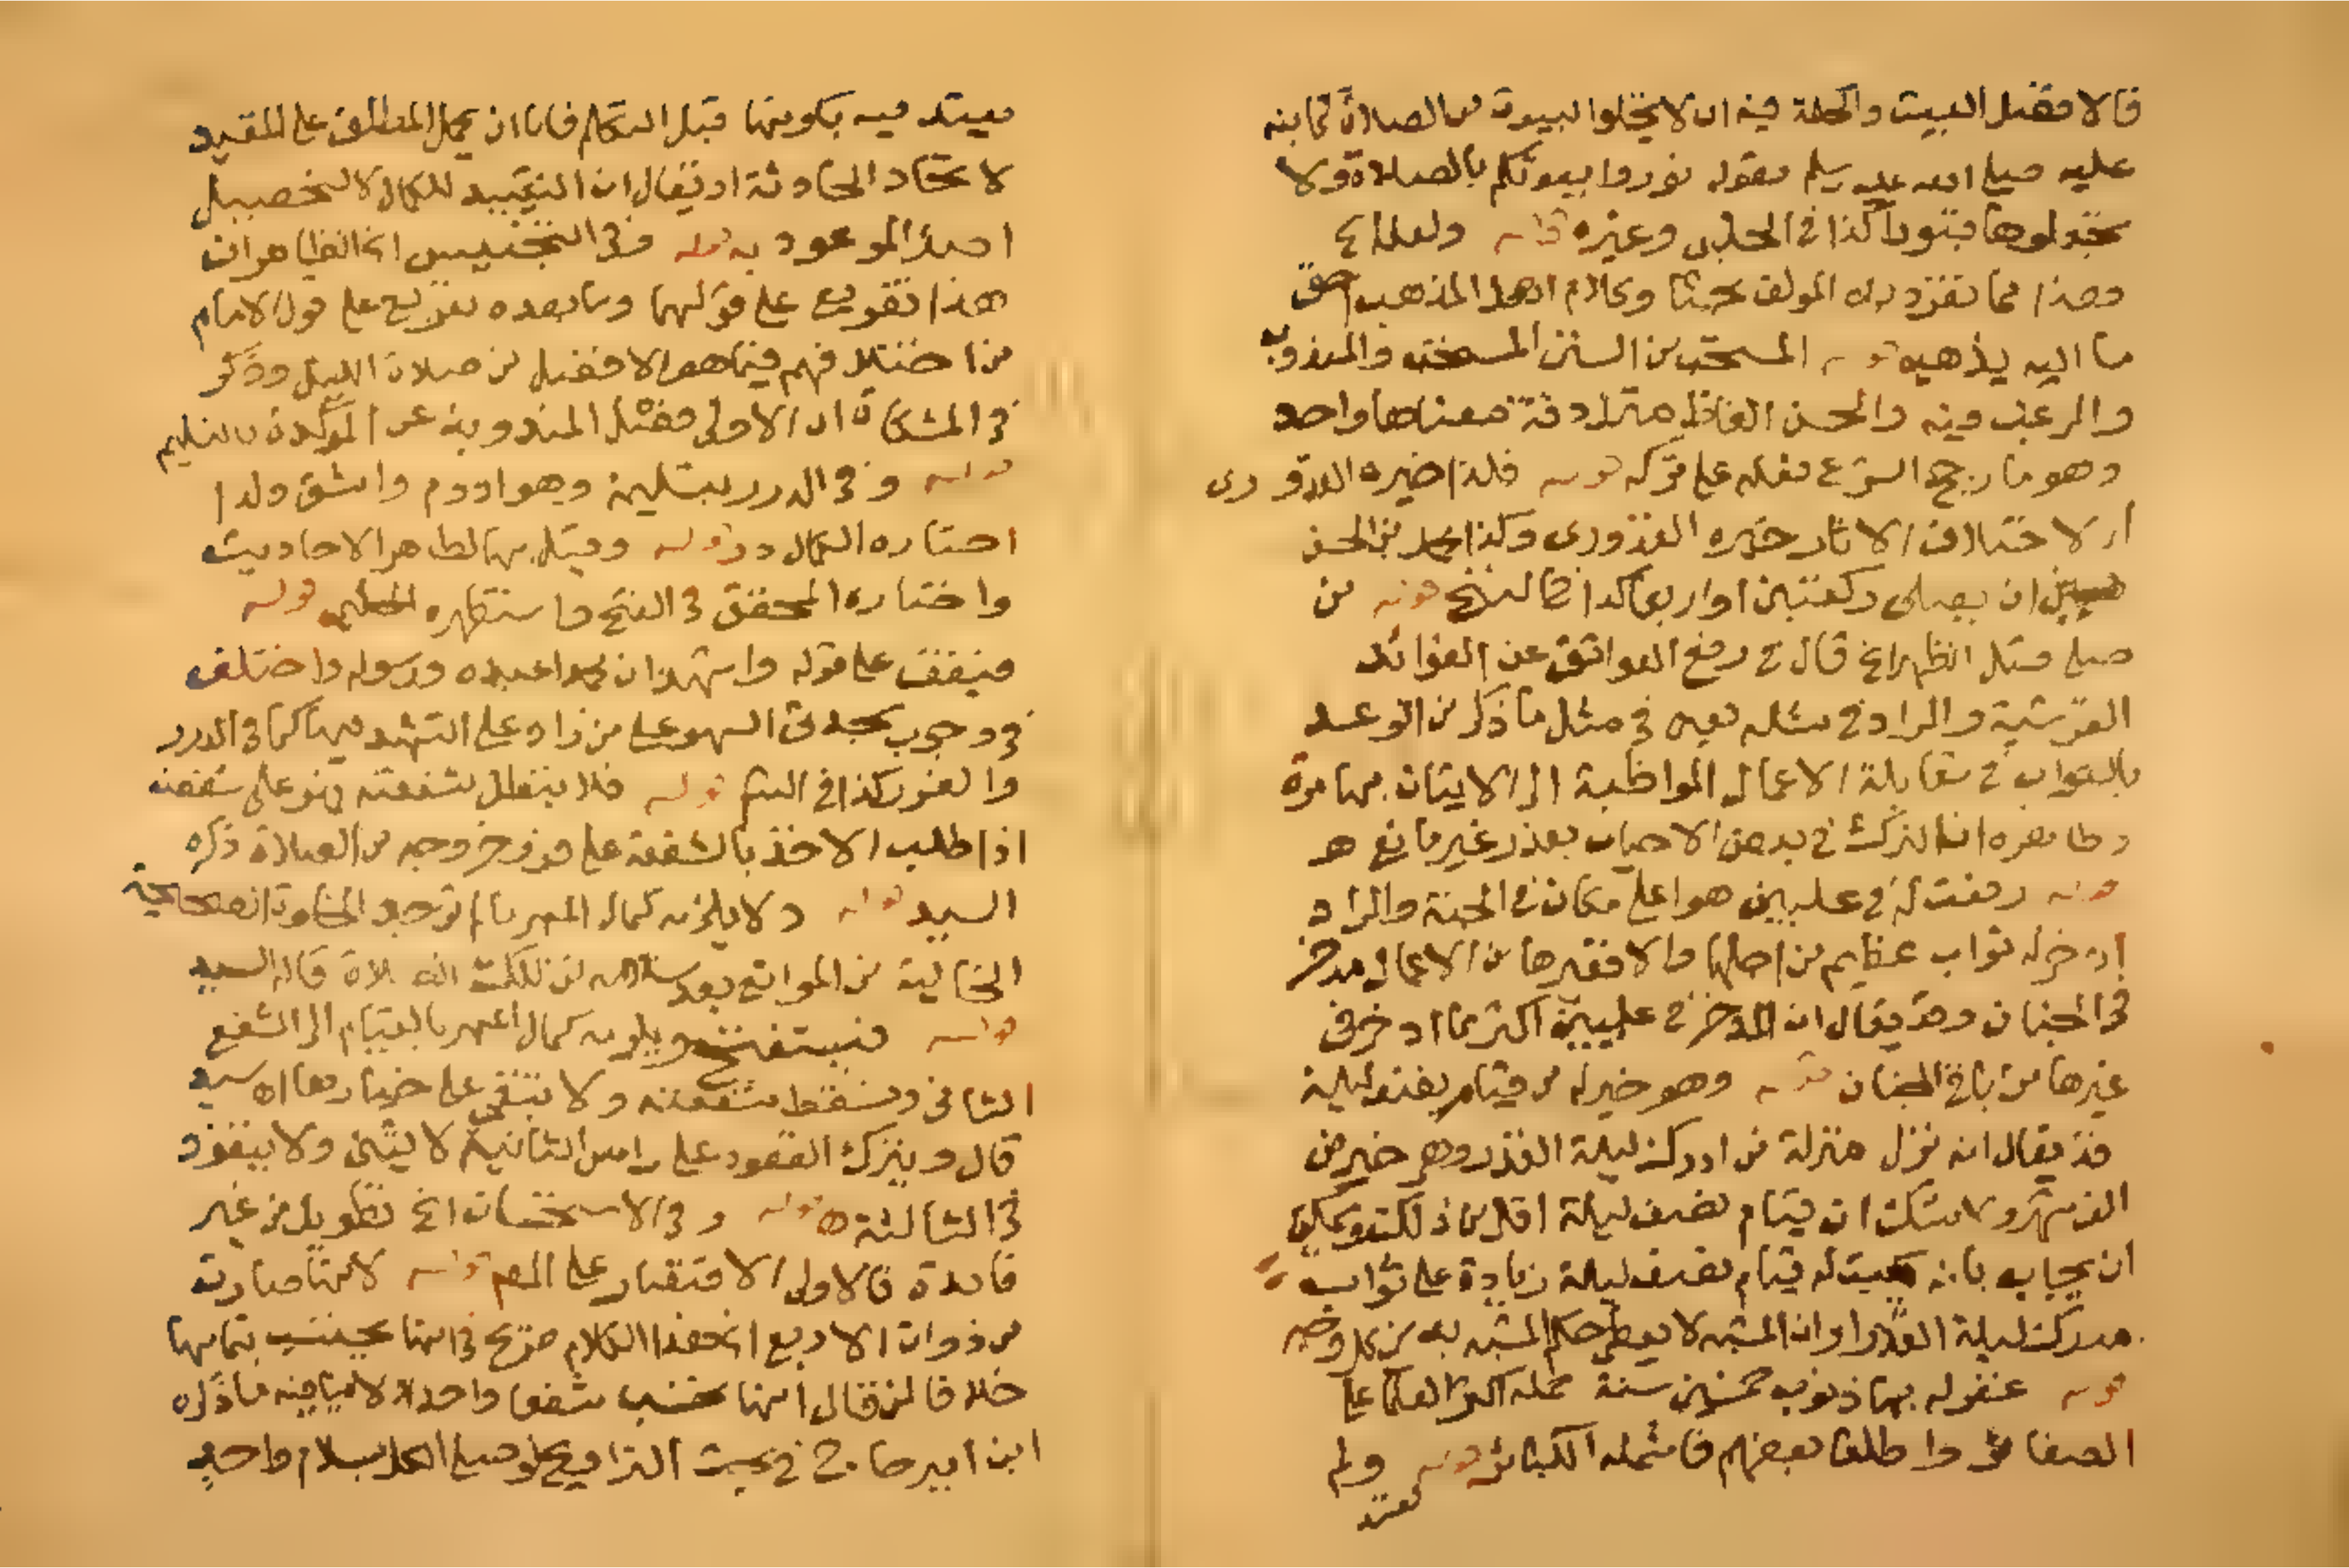 فالافضل البيت والحكمة فيه ان لا يخلوا البيوت من الصلاة كما بنه
عليه صلى الله عليه وسلم بقوله نوروا بيوتكم بالصلاة ولا
تجعلوها قبورا كذا في الحلبى وغيره قوله ولعله الخ
وهذا مما تفرد به المولف بحثا وكلام اهل المذهب احق
ما اليه يذهب قوله المستحب من السنن المستحب والمندوب
والمرغب فيه والحسن الفاظ مترادفة معناها واحد
وهو ما رجح الشرع فعله على تركه قوله فلذا خيره القدورى
اى لاختلاف الاثار خيره القدورى وكذا محمد بن الحسن
بين ان يصلى ركعتين او اربعا كذا في النهر قوله من
صلى قبل الظهر الخ قال في رفع العوائق عن الفوائد
القرشية والمراد في مثله يعنى في مثل ما ذكر من الوعد
بالثواب في مقابلة الاعمال المواظبة الى الاتيان بها مرة
وظاهره ان الترك في بعض الاحيان بعذر غير مانع هـ
قوله رفعت له في عليين هو اعلى مكان في الجنة والمراد
ادخر له ثواب عظيم من اصلها والا فغيرها من الاعمال مدخر
في الجنان وقد يقال ان المدخر في عليين اكثر مما ادخر في
غيرها من باقى الجنان قوله وهو خير له من قيام نصف ليلة
قد يقال انه نزل منزلة من ادرك ليلة القدر وهى خير من
الف شهر ولا شك ان قيام نصف ليلة اقل من ذلك ويمكن
ان يجاب بانه كتبت له قيام نصف ليلة زيادة على ثواب
مدرك ليلة القدر او ان المشبه لا يعطى حكم المشبه به من كل وجه
قوله غفر له بها ذنوب خمسين سنة حمله اكثر العلما على
الصغائر واطلق بعضهم فاشمله الكبائر قوله ولم
يقيد
يقيد فيه بكونها قبل التكلم فاما ان يحمل المطلق على المقيد
لاتحاد الحادثة او يقال ان التقييد للكمال لا لتحصيل
اصل الموعود به قوله وفي التجنيس الخ الظاهر ان
هذا تفريع على قولهما وما بعده تفريع على قول الامام
من اختلافهم فيما هو الافضل من صلاة الليل وذكر
في المشكاة ان الاولى فضل المندوبة عن الموكدة بالتسليم
قوله وفي الدرر بتسليمة وهو ادوم واشق ولذا
اختاره الكمال درر قوله وقيل بهما لظاهر الاحاديث
واختاره المحقق في الفتح واستظهره الحلبى قوله
فيقف على قوله واشهد ان محمدا عبده ورسوله واختلف
في وجوب سجدتى السهو على من زاد على التشهد فيها كما في الدرر
والغرر كذا في قوله فلا يبطل شفعته وهو على شفعته
اذا طلب الاخذ بالشفعة على فور خروجه من الصلاة ذكره
السيد قوله ولا يلزمه كمال المهر ما لم توجد الخلوة الصحيحة
الخالية من الموانع بعد سلامه من تلك الصلاة قاله السيد
قوله فيستفتح ويلزمه كمال المهر بالقيام الى الشفع
الثانى وتسقط شفعته ولا تبقى على خيارها اهـ سيد
قال ويترك القعود على راس الثانية لا يثنى ولا يتعوذ
في الثالثة هـ قوله وفي الاستحسان الخ تطويل من غير
فائدة فالاولى الاقتصار على المص قوله لانها صارت
من ذوات الاربع الخ هذا الكلام صريح في انها تحتسب بتمامها
خلافا لمن قال انها تحتسب شفعا واحدا لا ينافيه ما ذكره
ابن امير حاج في بحث التراويح لو صلى الكل بسلام واحد